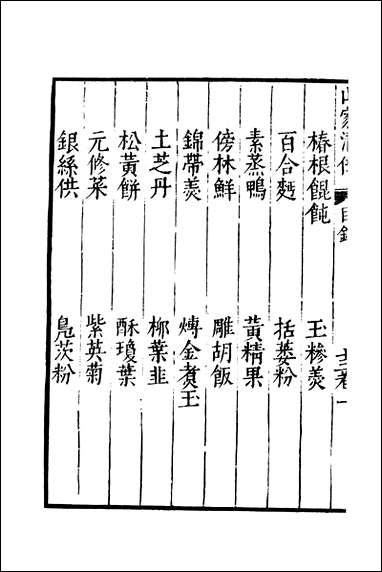 山家清供 目錄
椿根餛飩 玉糝羹
百合麪 括蔞粉
素蒸鴨 黃精果
傍林鮮 雕胡飯
錦帶羹 煿金煮玉
土芝丹 栁葉韭
松黃餅 酥瓊葉
元修菜 紫英菊
銀絲供 鳧茨粉